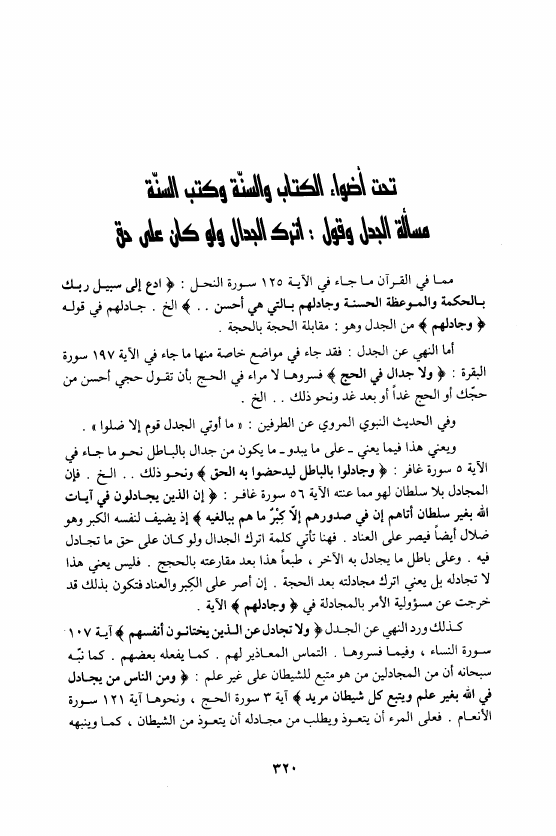 تحت أضواء الكتاب والسنّة وكتب السنّة
مسألة الجدل وقول : اترك الجدال ولو كان على حق
مما في القرآن ما جاء في الآية ١٢٥ سورة النحل : ﴿ ادع إلى سبيل ربك
بالحكمة والموعظة الحسنة وجادلهم بالتي هي أحسن . . ﴾ الخ . جادلهم في قوله
﴿ وجادلهم ﴾ من الجدل وهو : مقابلة الحجة بالحجة .
أما النهي عن الجدل : فقد جاء في مواضع خاصة منها ما جاء في الآية ١٩٧ سورة
البقرة : ﴿ ولا جدال في الحج ﴾ فسروها لا مراء في الحج بأن تقول حجي أحسن من
حجّك أو الحج غداً أو بعد غد ونحو ذلك . . الخ .
وفي الحديث النبوي المروي عن الطرفين : « ما أوتي الجدل قوم إلا ضلوا » .
ويعني هذا فيما يعني ـ على ما يبدو ـ ما يكون من جدال بالباطل نحو ما جاء في
الآية ٥ سورة غافر : ﴿ وجادلوا بالباطل ليدحضوا به الحق ﴾ ونحو ذلك . . الخ . فإن
المجادل بلا سلطان لهو مما عنته الآية ٥٦ سورة غافر : ﴿ إن الذين يجادلون في آيات
الله بغير سلطان أتاهم إن في صدورهم إلّا كِبْرٌ ما هم ببالغيه ﴾ إذ يضيف لنفسه الكبر وهو
ضلال أيضاً فيصر على العناد . فهنا تأتي كلمة اترك الجدال ولو كان على حق ما تجادل
فيه . وعلى باطل ما يجادل به الآخر ، طبعاً هذا بعد مقارعته بالحجج . فليس يعني هذا
لا تجادله بل يعني اترك مجادلته بعد الحجة . إن أصر على الكِبر والعناد فتكون بذلك قد
خرجت عن مسؤولية الأمر بالمجادلة في ﴿ وجادلهم ﴾ الآية .
كذلك ورد النهي عن الجدل ﴿ ولا تجادل عن الذين يختانون أنفسهم ﴾ آية ١٠٧
سورة النساء ، وفيما فسروها . التماس المعاذير لهم . كما يفعله بعضهم . كما نبّه
سبحانه أن من المجادلين من هو متبع للشيطان على غير علم : ﴿ ومن الناس من يجادل
في الله بغير علم ويتبع كل شيطان مريد ﴾ آية ٣ سورة الحج ، ونحوها آية ١٢١ سورة
الأنعام . فعلى المرء أن يتعوذ ويطلب من مجادله أن يتعوذ من الشيطان ، كما وينبهه
٣٢٠